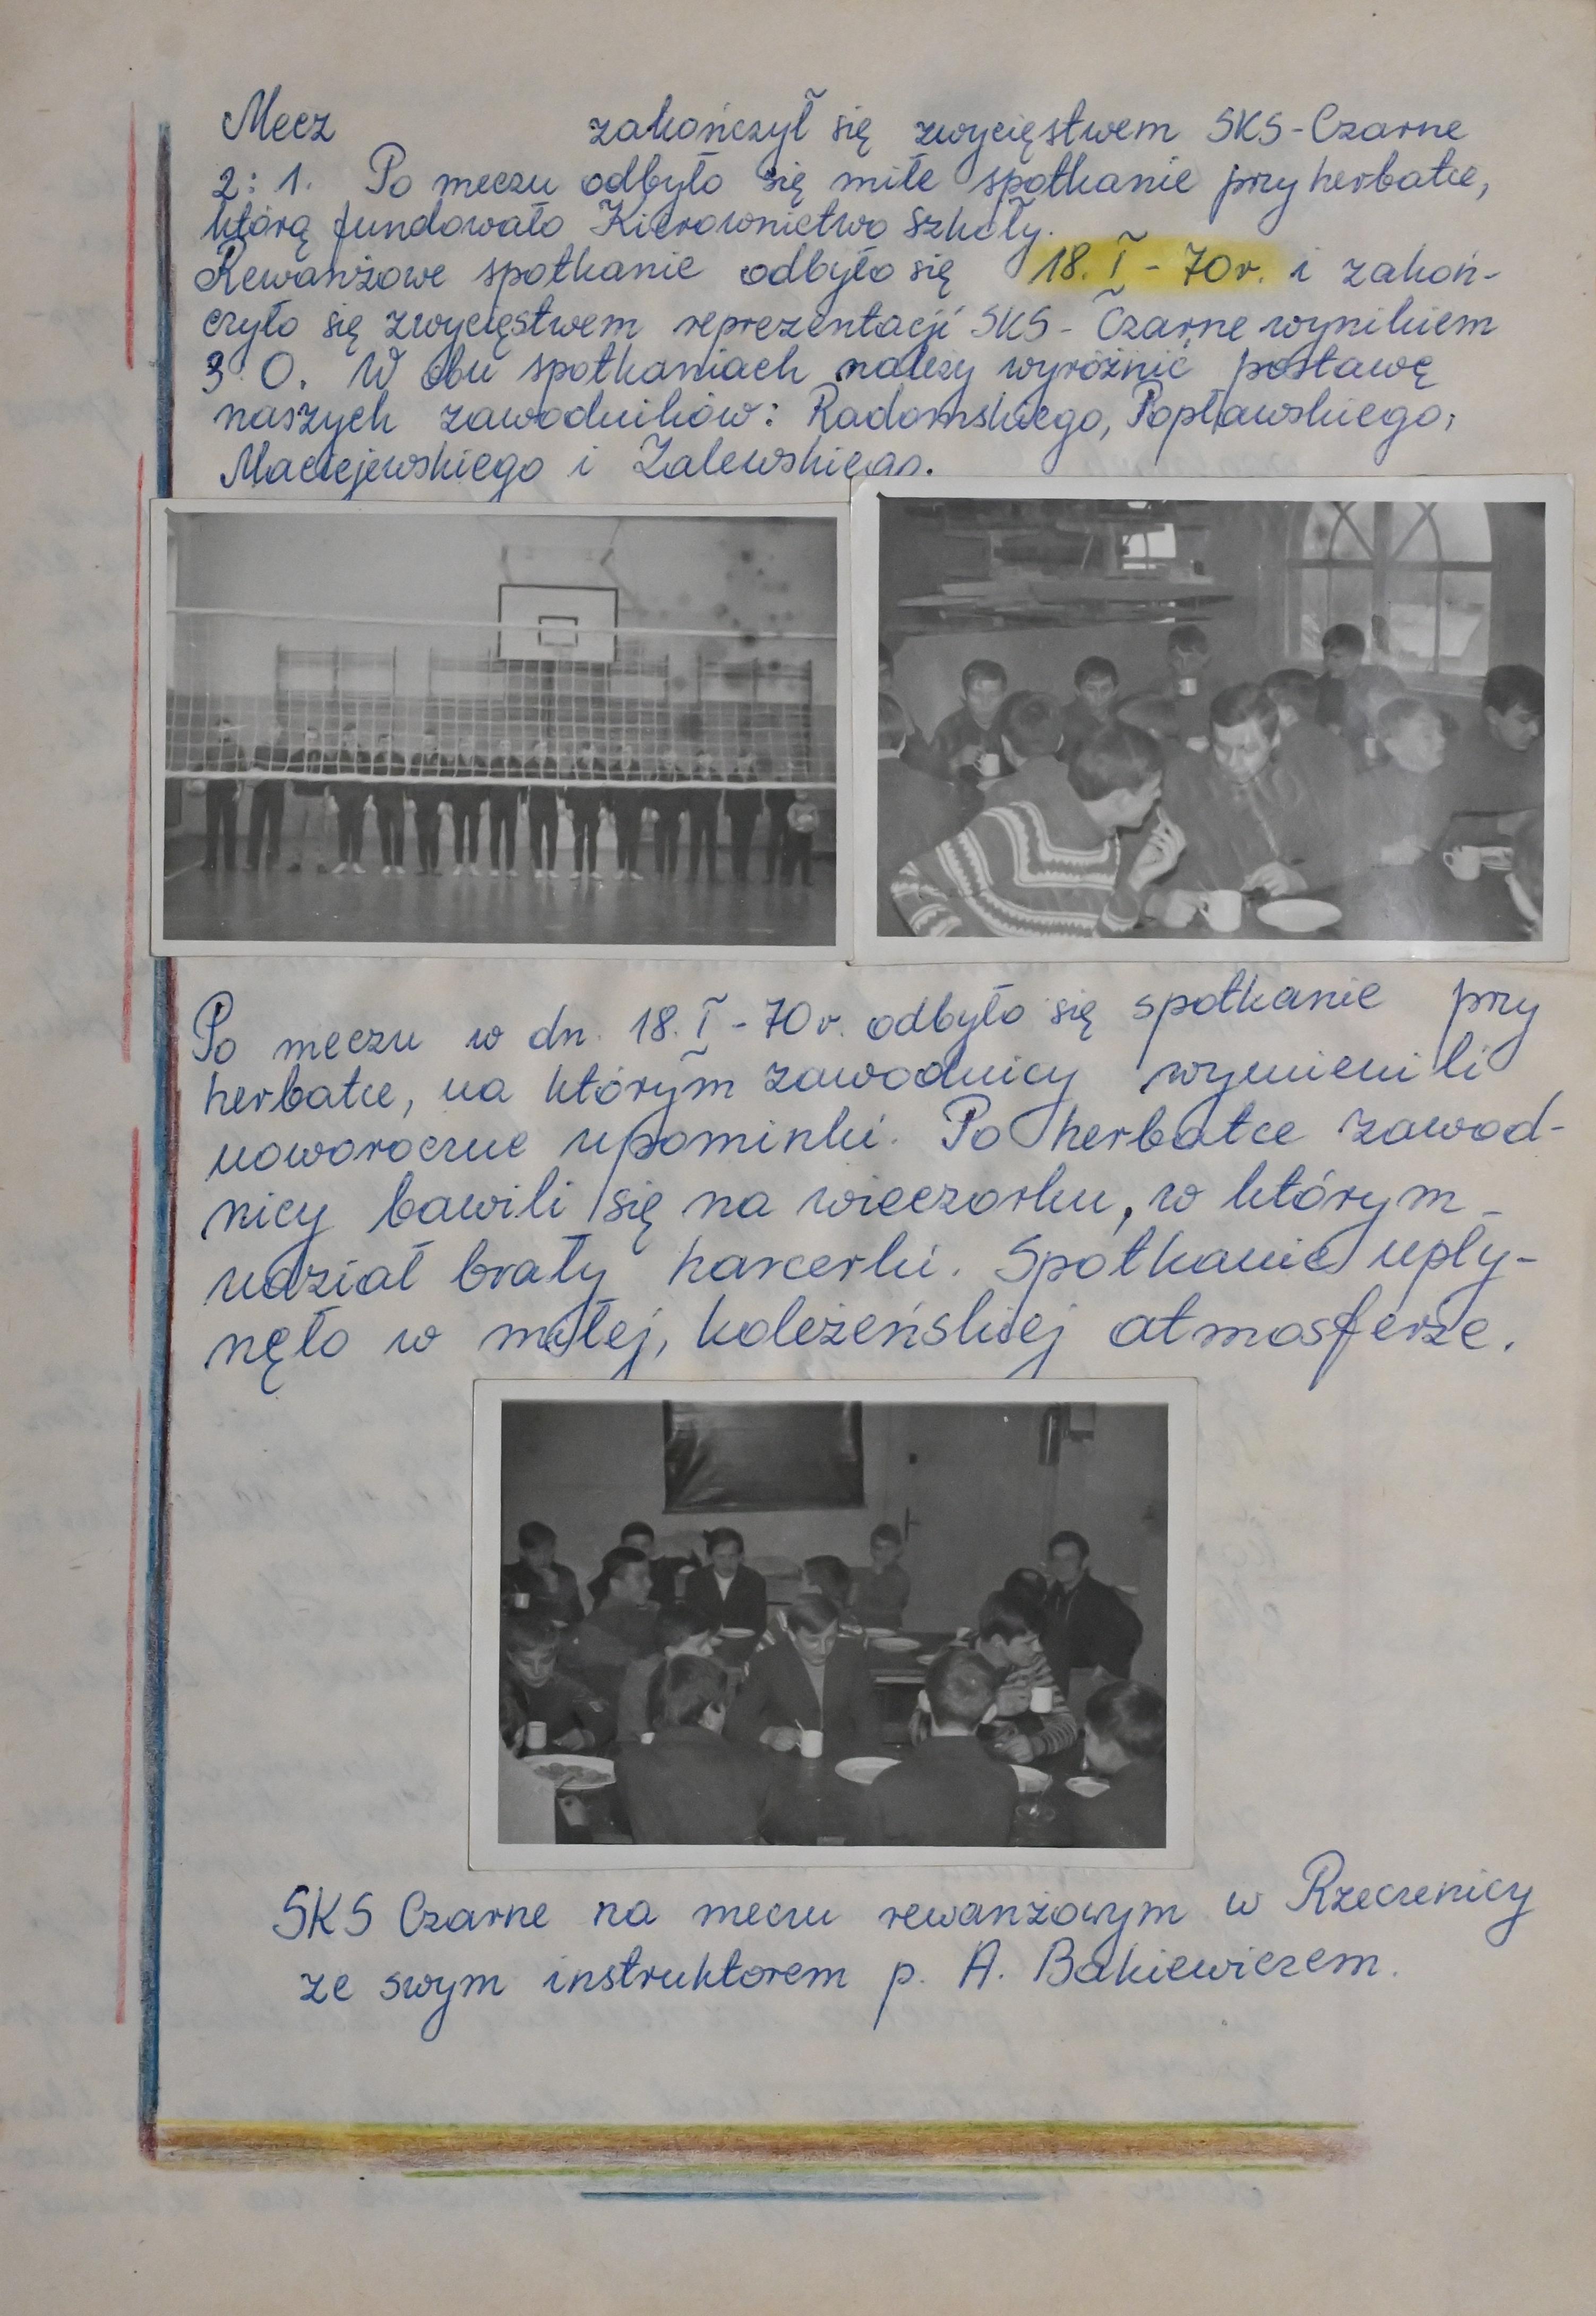 Mecz zakończył się zwycięstwem SKS-Czarne
2:1. Po meczu odbyło się miłe spotkanie przy herbatce,
którą fundowało Kierownictwo szkoły.
Rewanżowe spotkanie odbyło się 18. I - 70r. i zakoń-
czyło się zwycięstwem reprezentacji SKS - Czarne wynikiem
3:0. W obu spotkaniach należy wyróżnić postawę
naszych zawodników: Radomskiego, Popławskiego,
Maciejewskiego i Zalewskiego.
Po meczu w dn. 18. I - 70r. odbyło się spotkanie przy
herbatce, na którym zawodnicy wymienili
noworoczne upominki. Po herbatce zawod-
nicy bawili się na wieczorku, w którym
udział brały harcerki. Spotkanie upły-
nęło w miłej, koleżeńskiej atmosferze.
SKS Czarne na meczu rewanżowym w Rzeczenicy
ze swym instruktorem p. A. Bakiewiczem.